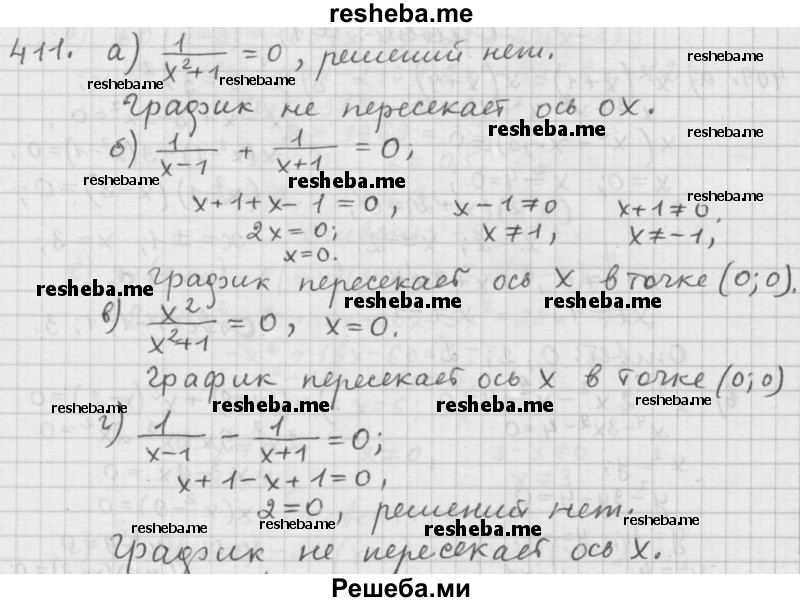 resheba.me
411. а) 1/(x²+1) = 0, решений нет.
resheba.me
resheba.me resheba.me
График не пересекает ось OX.
resheba.me resheba.me
б) 1/(x-1) + 1/(x+1) = 0;
resheba.me resheba.me
x+1+x-1=0, x-1≠0 x+1≠0,
resheba.me
2x=0; x≠1, x≠-1,
x=0.
График пересекает ось X в точке (0;0).
resheba.me resheba.me resheba.me
в) x²/(x²+1) = 0, x=0.
График пересекает ось X в точке (0;0)
resheba.me resheba.me resheba.me resheba.me
г) 1/(x-1) - 1/(x+1) = 0;
x+1-x+1=0,
2=0, решений нет.
resheba.me resheba.me resheba.me resheba.me
График не пересекает ось X.
Решеба.ми